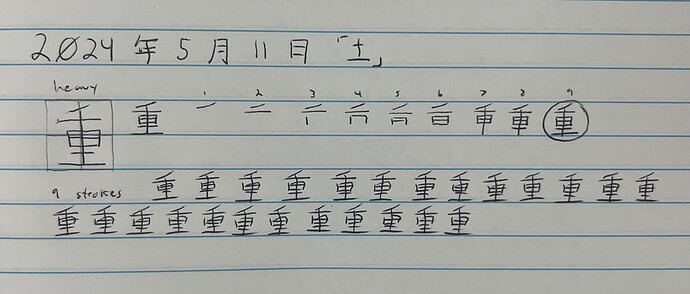 2024 年 5 月 11 日「土」
heavy 1 2 3 4 5 6 7 8 9
重 重 重
9 strokes 重 重 重 重 重 重 重 重 重 重 重 重 重
重 重 重 重 重 重 重 重 重 重 重 重